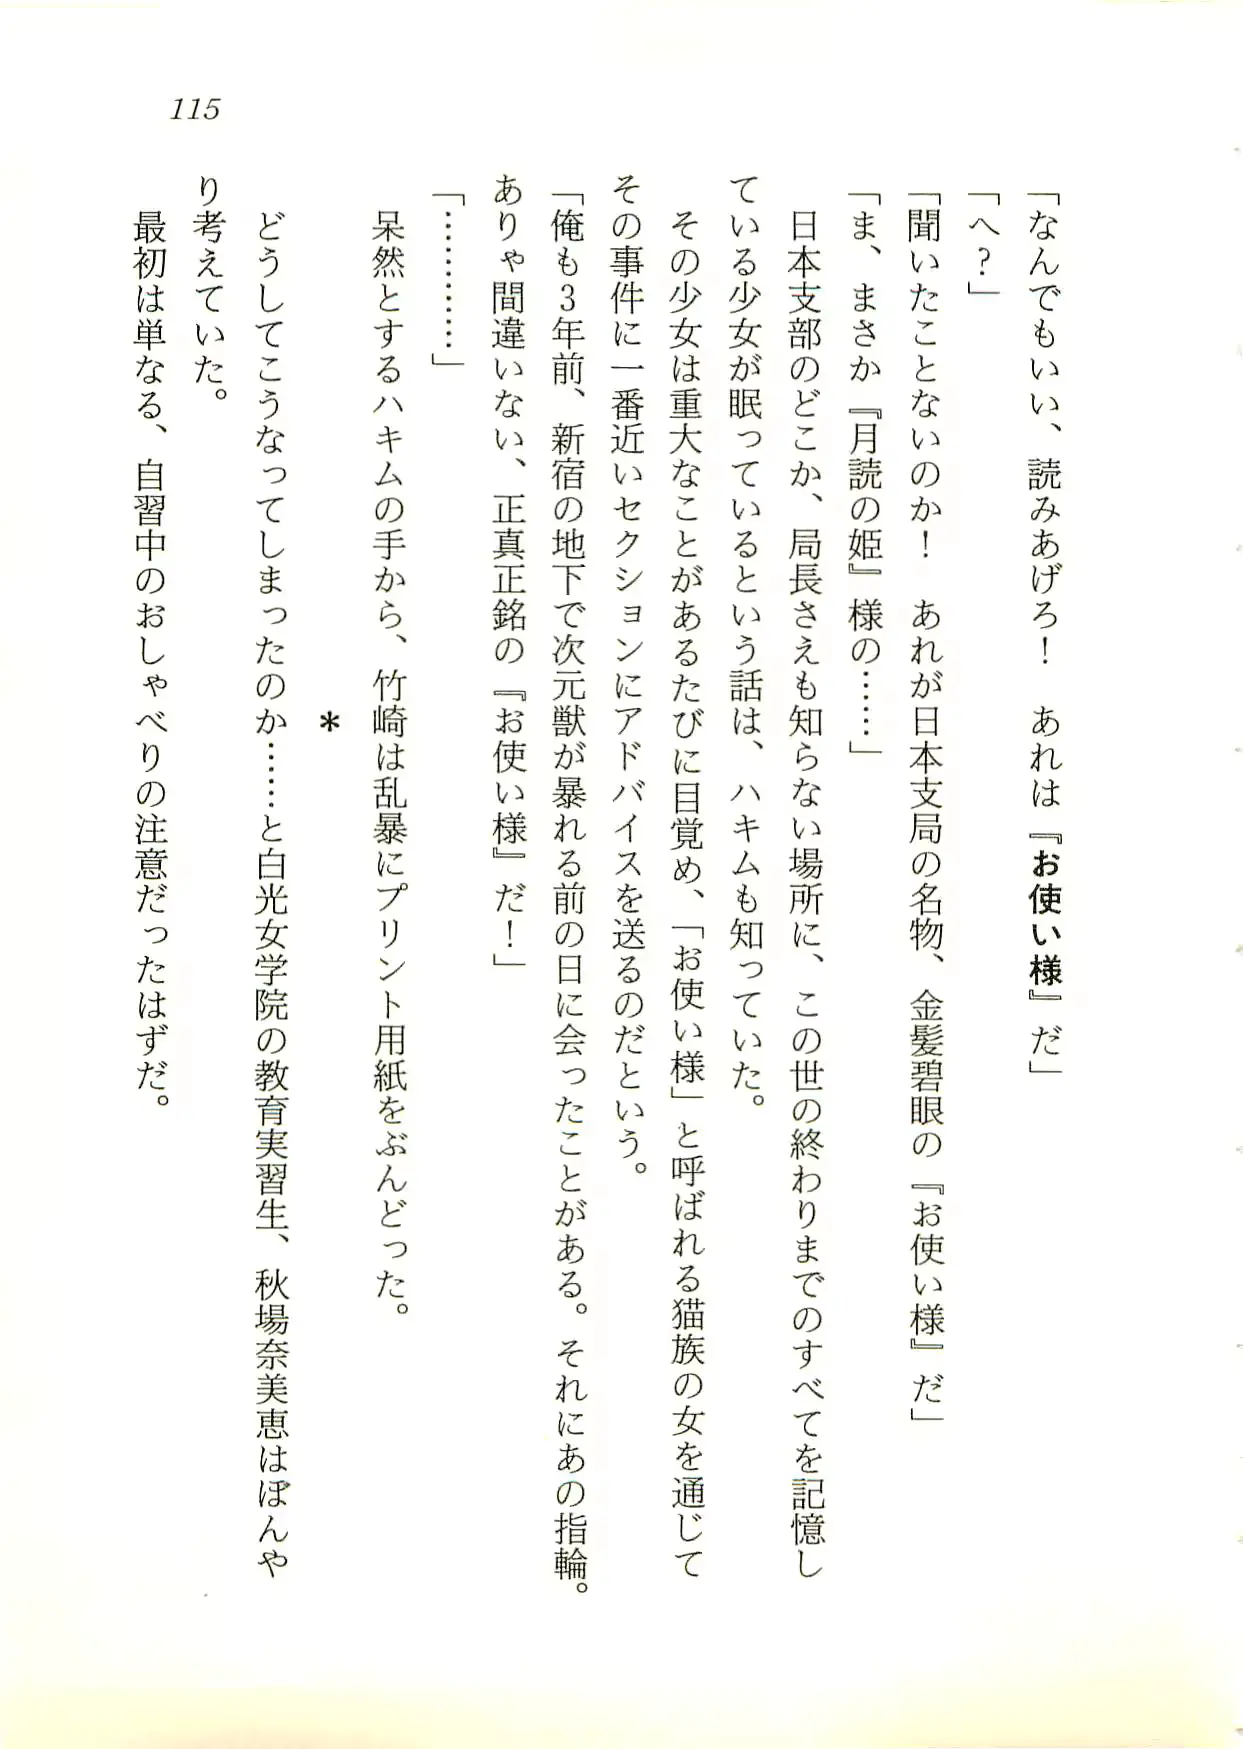 115
「なんでもいい、読みあげろ！　あれは『お使い様』だ」
「へ？」
「聞いたことないのか！　あれが日本支局の名物、金髪碧眼の『お使い様』だ」
「ま、まさか『月読の姫』様の……」
　日本支部のどこか、局長さえも知らない場所に、この世の終わりまでのすべてを記憶し
ている少女が眠っているという話は、ハキムも知っていた。
　その少女は重大なことがあるたびに目覚め、「お使い様」と呼ばれる猫族の女を通じて
その事件に一番近いセクションにアドバイスを送るのだという。
「俺も３年前、新宿の地下で次元獣が暴れる前の日に会ったことがある。それにあの指輪。
ありゃ間違いない、正真正銘の『お使い様』だ！」
「…………」
　呆然とするハキムの手から、竹崎は乱暴にプリント用紙をぶんどった。
＊
　どうしてこうなってしまったのか……と白光女学院の教育実習生、秋場奈美恵はぼんや
り考えていた。
　最初は単なる、自習中のおしゃべりの注意だったはずだ。